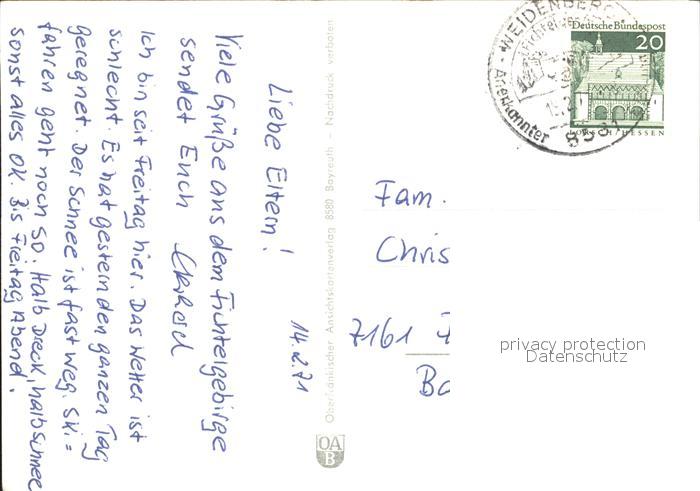 14.2.71
Liebe Eltern!
Viele Grüße aus dem Fichtelgebirge
sendet Euch
Ich bin seit Freitag hier. Das Wetter ist
schlecht. Es hat gestern den ganzen Tag
geregnet. Der Schnee ist fast weg. Ski=
fahren geht noch so. Halb Dreck, halb Schnee
sonst alles OK. Bis Freitag Abend.
Oberfränkischer Ansichtskartenverlag 8580 Bayreuth - Nachdruck verboten
OA
B
WEIDENBERG
Anerkannter
8581
15.2.
Deutsche Bundespost
20
LORSCH/HESSEN
Fam.
Chris
7161
Ba
privacy protection
Datenschutz